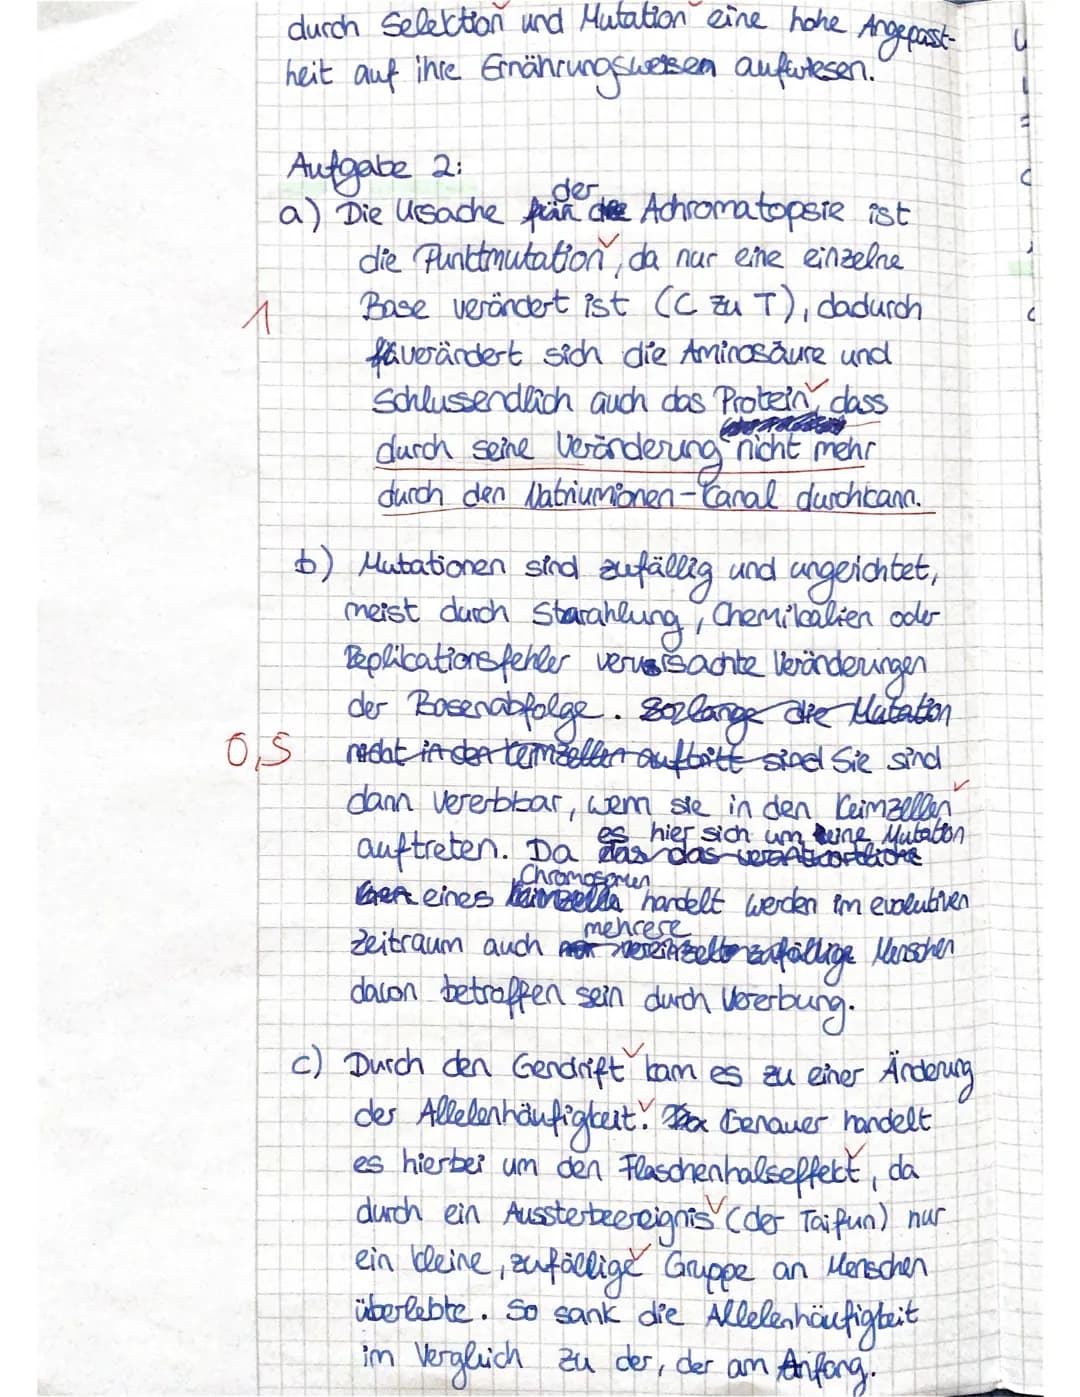 durch Selektion und Mutation eine hohe Angepasst-
heit auf ihre Ernährungsweisen aufwiesen.
Aufgabe 2:
der
a) Die Ursache Achromatopsie ist
die Punktmutation, da nur eine einzelne
Base verändert ist (C zu T), dadurch
1
verändert sich die Aminosäure und
Schlussendlich auch das Protein, dass
durch seine Veränderung nicht mehr
durch den Natriumionen-Kanal durchkann.
b) Mutationen sind zufällig und ungerichtet,
meist durch Starahlung, Chemikalien oder
Replikationsfehler verursachte Veränderungen
der Basenabfolge. Solange die Mutation
0,5
nicht in den Keimzellen auftritt sind Sie sind
dann vererbbar, wenn sie in den Keimzellen
es hier sich um eine Mutation
auftreten. Da das das verantwortliche
Chromosomen
eines Keimzelle handelt werden im evolutiven
mehrere
Zeitraum auch nur vereinzelte zufällige Menschen
davon betroffen sein durch Vererbung.
c) Durch den Gendrift kam es zu einer Änderung
der Allelenhäufigkeit. Genauer handelt
es hierbei um den Flaschenhalseffekt, da
durch ein Aussterbeereignis (der Taifun) nur
ein kleine, zufällige Gruppe an Menschen
überlebte. So sank die Allelenhäufigkeit
im Vergleich zu der, der am Anfang.